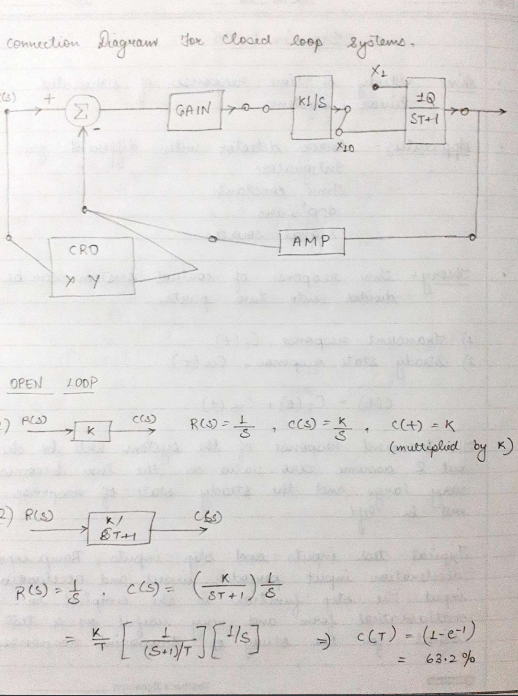 connection Diagram for closed loop systems.
(s) + Σ - GAIN K1/S X1 X10 10 ST+1
CRO
X Y
AMP
OPEN LOOP
1) R(s) K C(s) R(s) = 1/S , C(s) = K/S , C(t) = K
(multiplied by K)
2) R(s) K/ST+1 C(s)
R(s) = 1/S . C(s) = (K/ST+1) 1/S
= K/T . [1/(S+1)/T] [1/S] ⇒ C(T) = (1-e⁻¹)
= 63.2 %